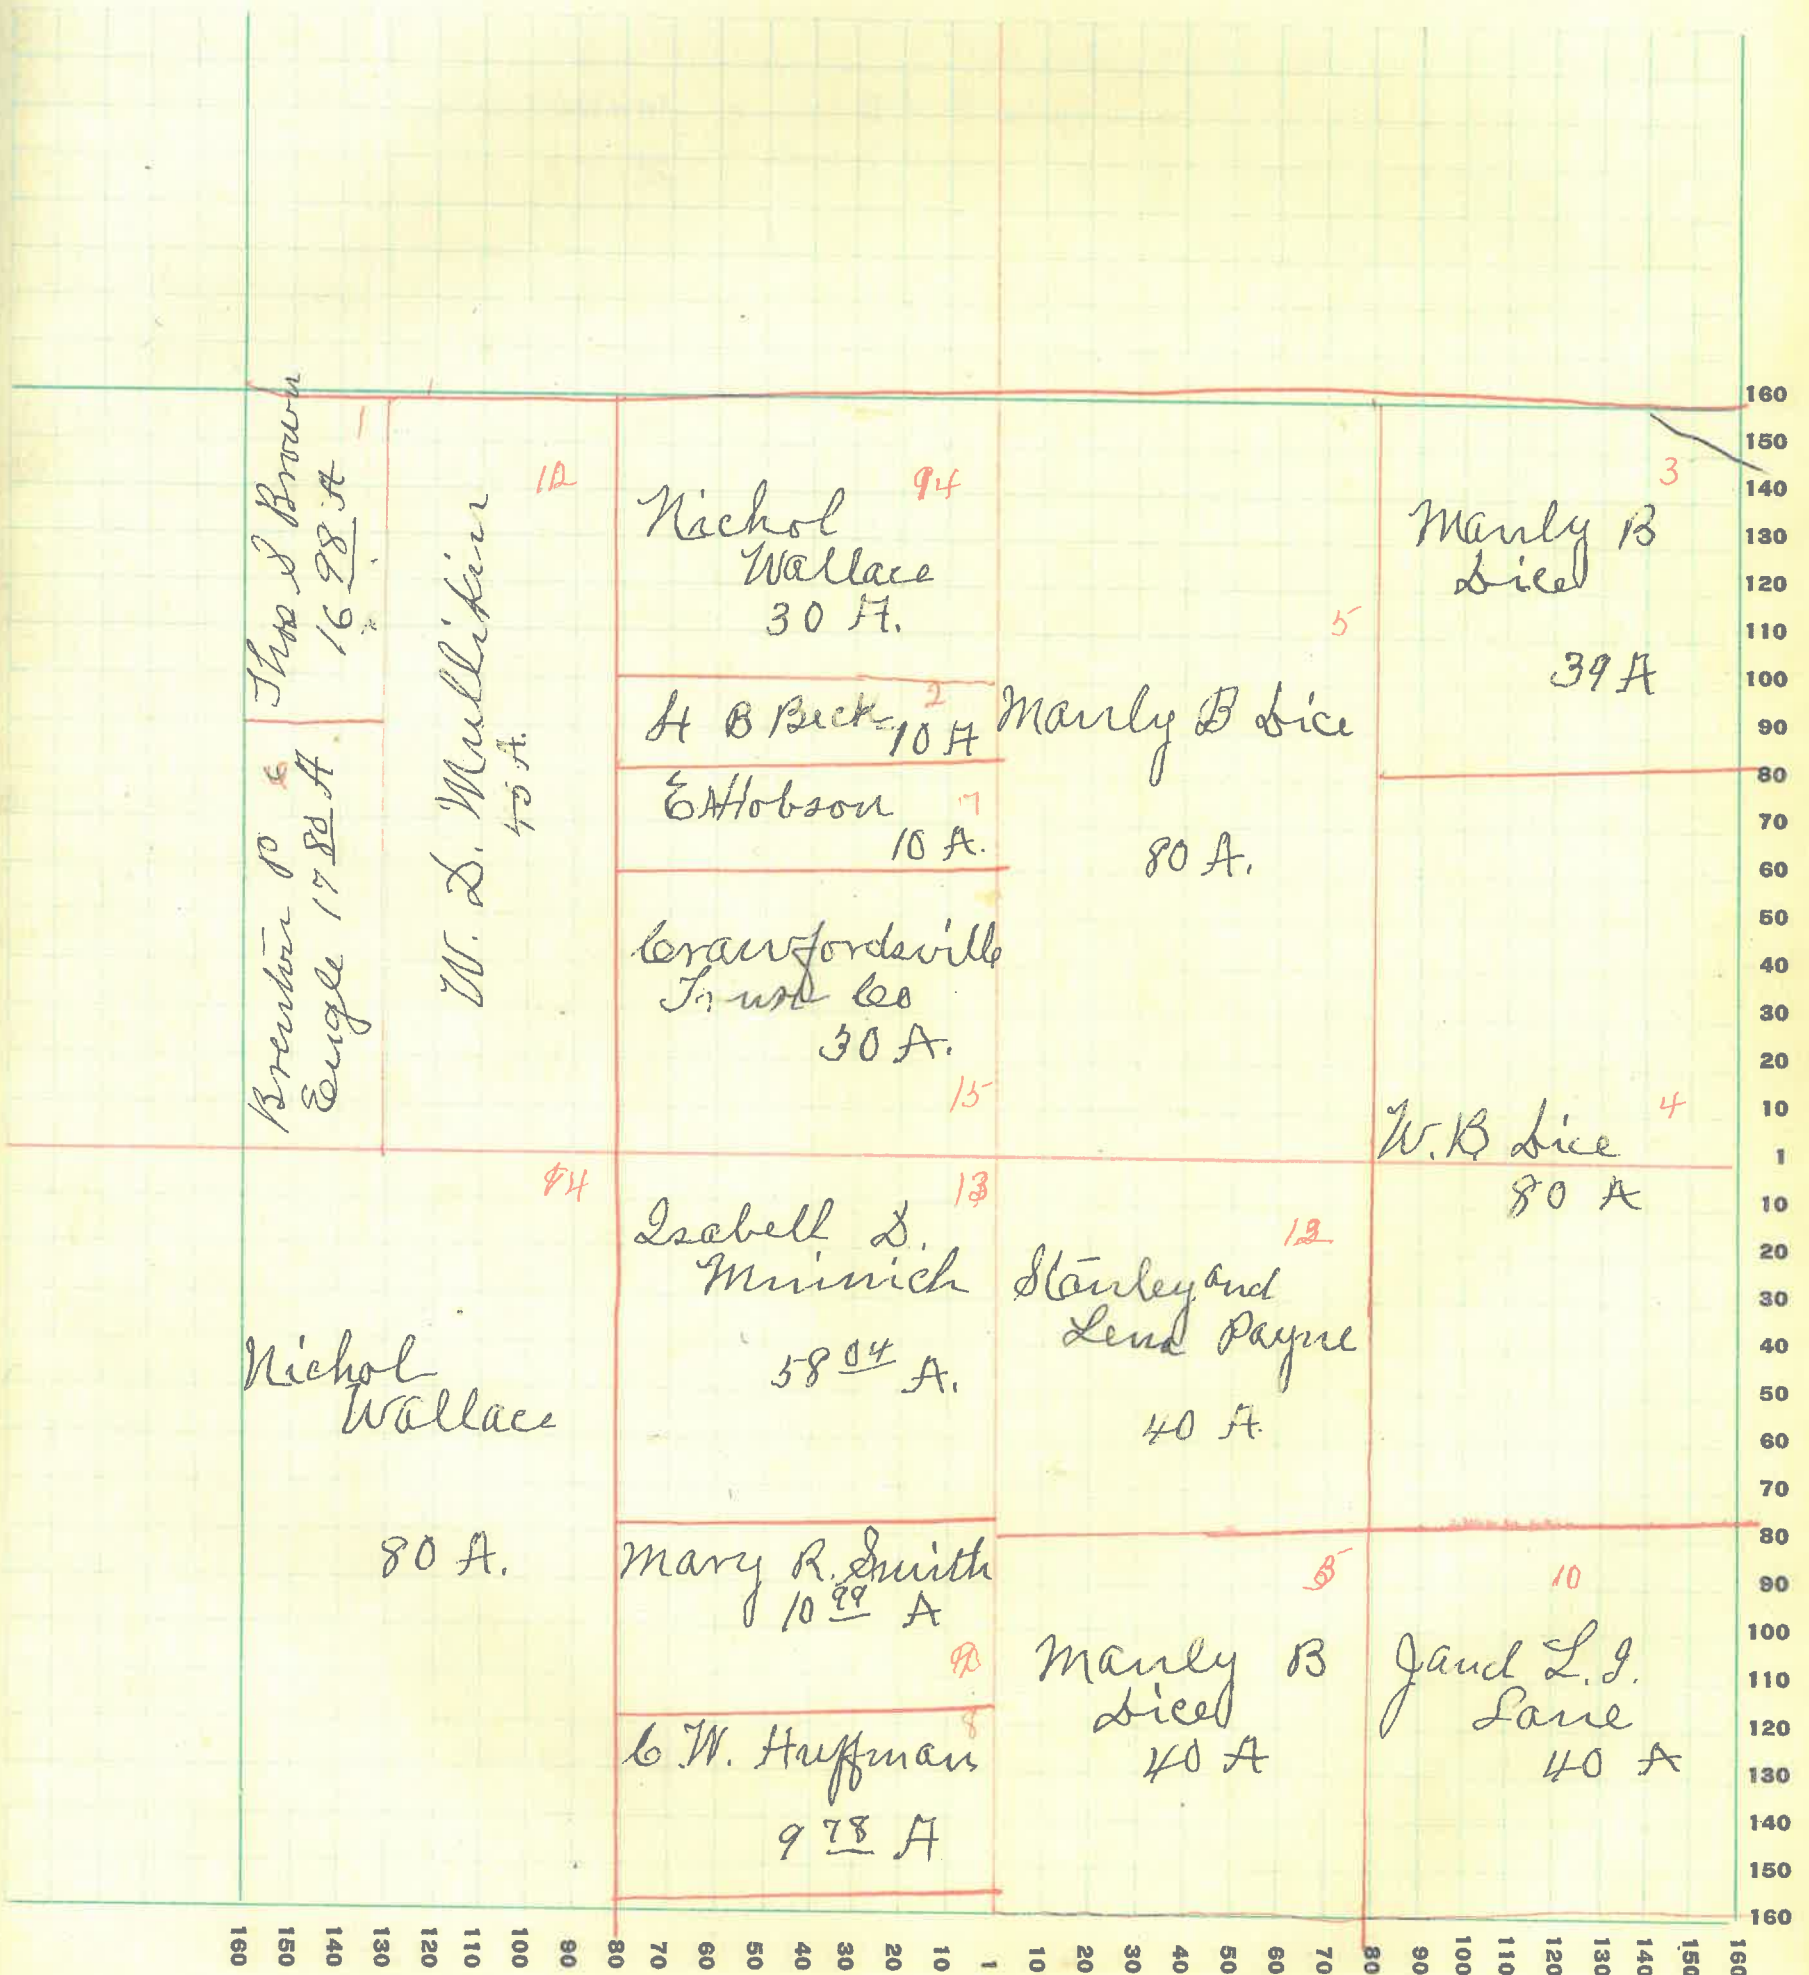 Thos S Brown
16 98 A
1
Brenton P
Engle 17 80 A
W. D. Mullikin
45 A.
12
Nichol
Wallace
30 A.
14
H B Beck
2
10 A
E A Hobson
7
10 A.
Crawfordsville
Trust Co
30 A.
15
Manly B Dice
80 A.
5
Manly B
Dice
39 A
3
W. B. Dice
4
80 A
14
Nichol
Wallace
80 A.
Isabell D.
Minnich
58 04 A.
13
Stanley and
Lena Payne
40 A.
Mary R. Smith
10 99 A
C. W. Huffman
8
9 78 A
5
Manly B
Dice
40 A
10
J and L. I.
Lane
40 A
160
150
140
130
120
110
100
90
80
70
60
50
40
30
20
10
1
10
20
30
40
50
60
70
80
90
100
110
120
130
140
150
160
160 150 140 130 120 110 100 90 80 70 60 50 40 30 20 10 1 10 20 30 40 50 60 70 80 90 100 110 120 130 140 150 160